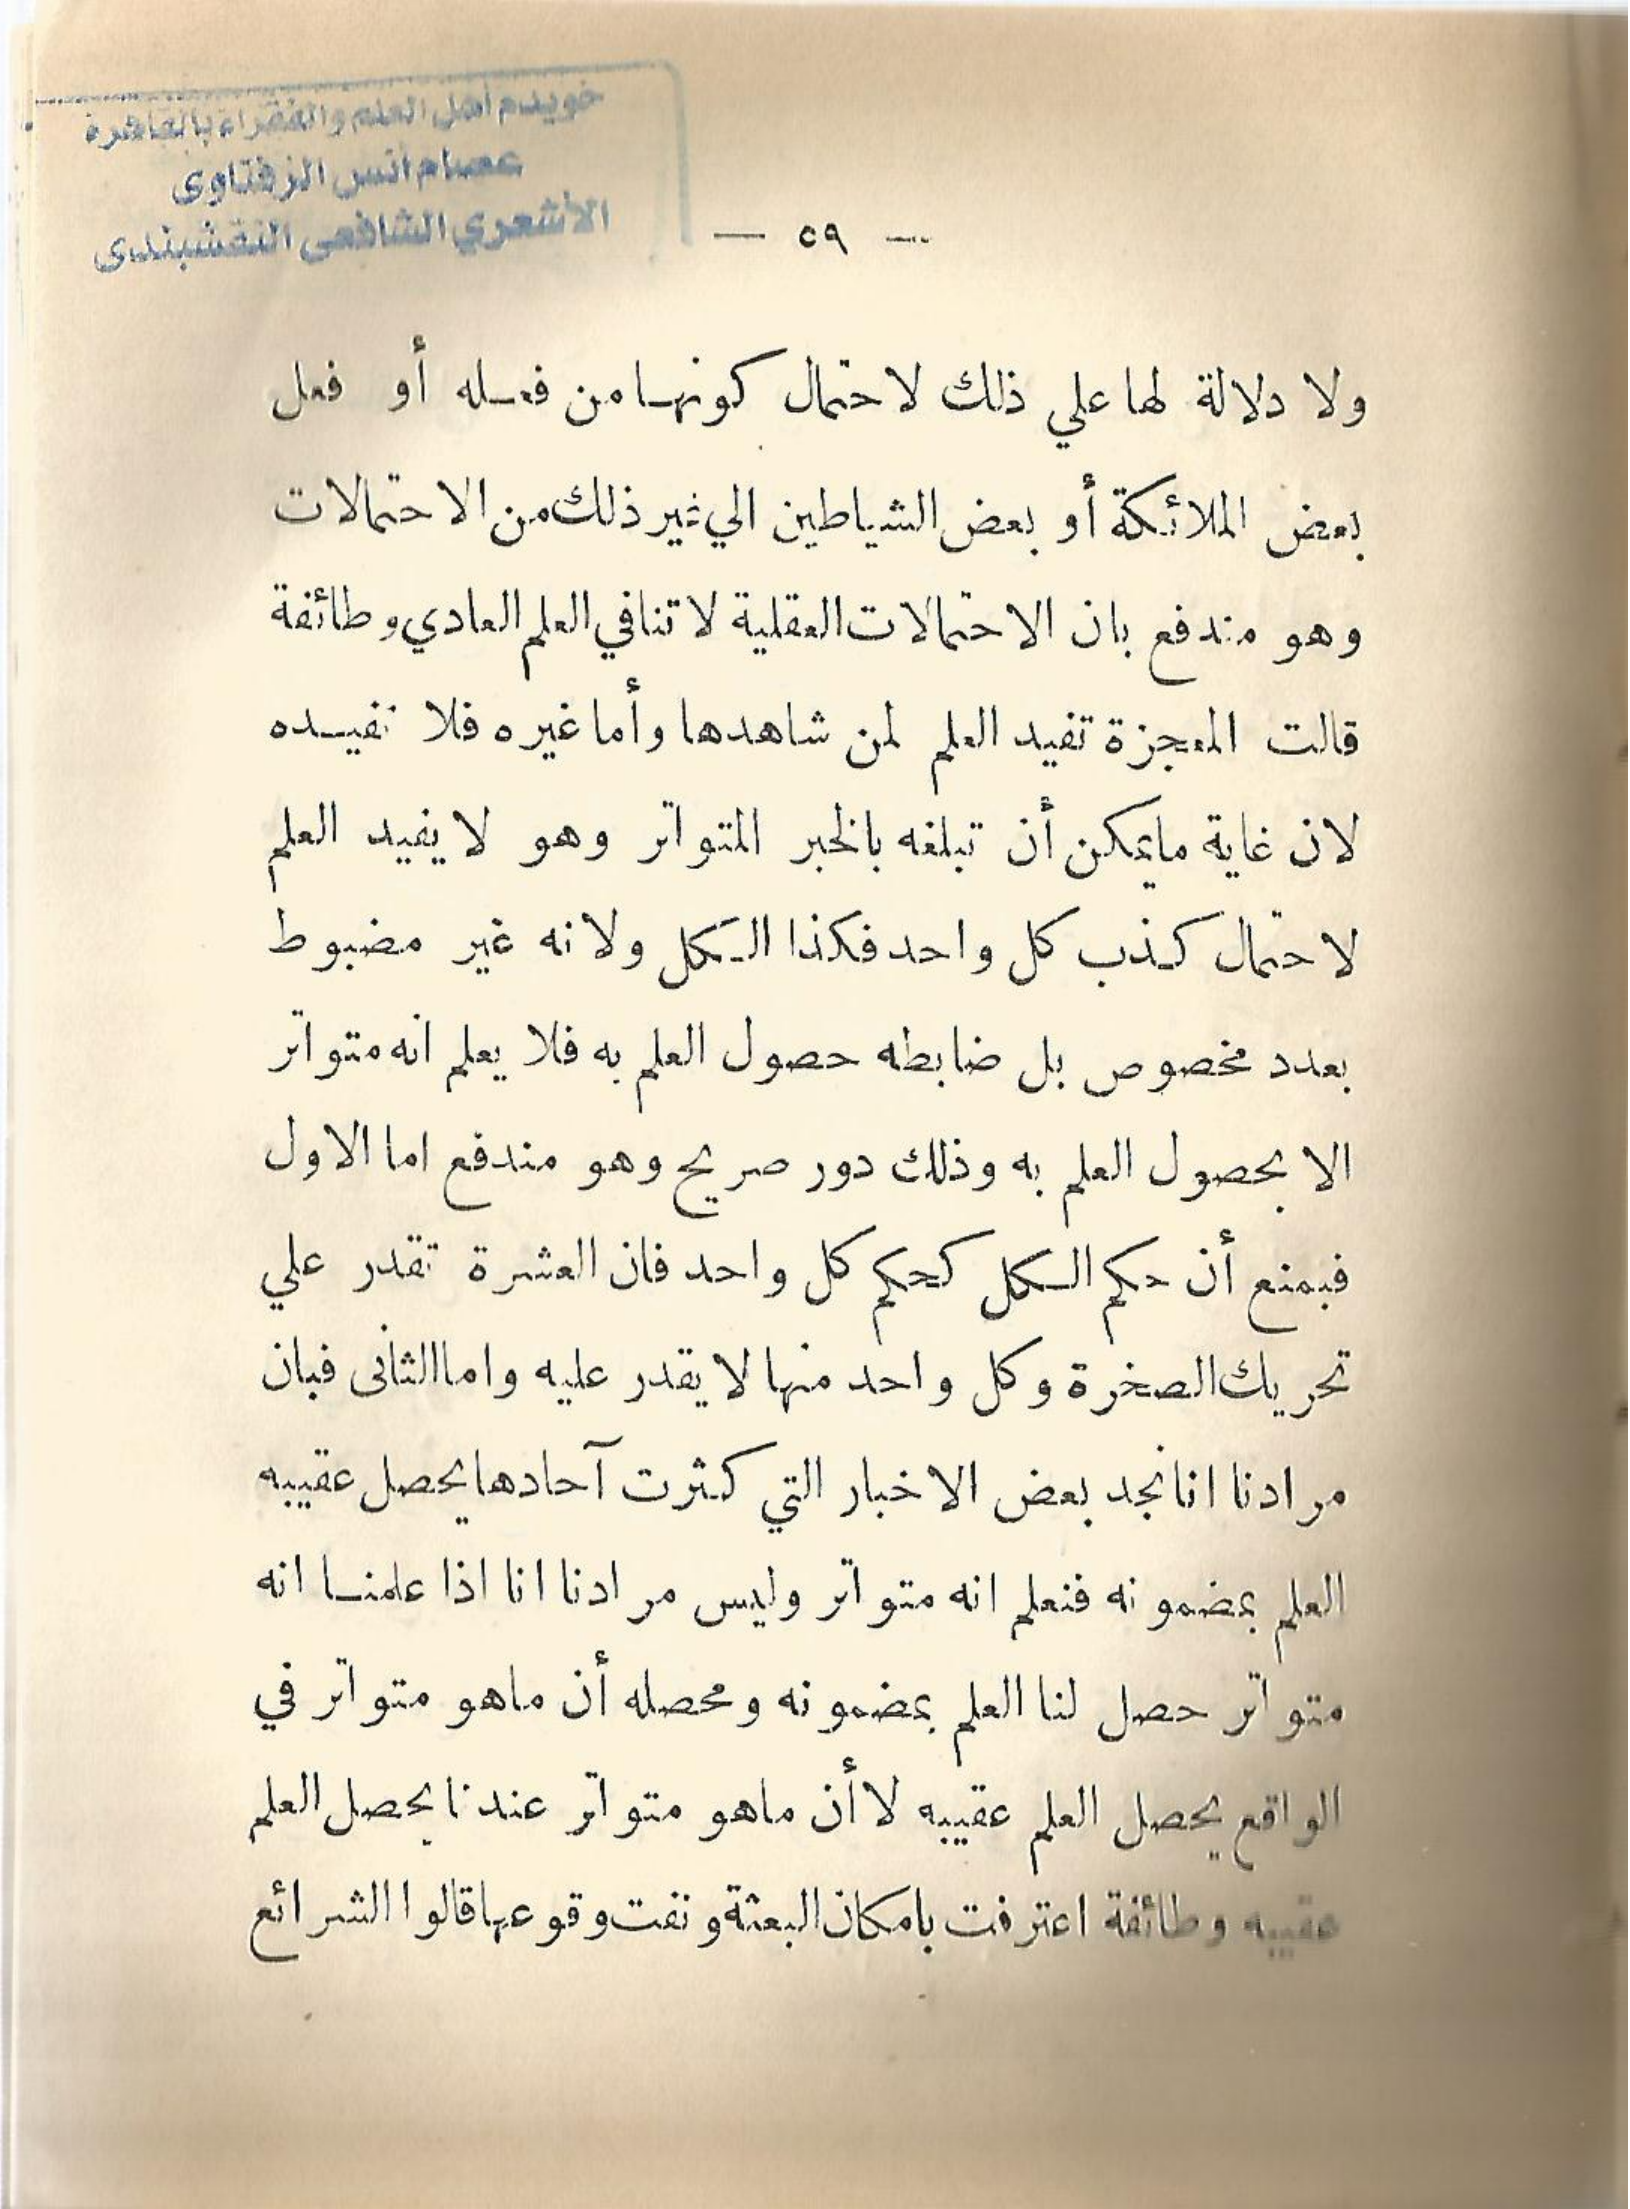 خويدم أهل العلم والفقراء بالقاهرة
عصام أنس الزفتاوى
الأشعري الشافعى النقشبندى
— ٥٩ —
ولا دلالة لها علي ذلك لاحتمال كونها من فعله أو فعل
بعض الملائكة أو بعض الشياطين الي غير ذلك من الاحتمالات
وهو مندفع بان الاحتمالات العقلية لا تنافي العلم العادي وطائفة
قالت المعجزة تفيد العلم لمن شاهدها وأما غيره فلا تفيده
لان غاية مايمكن أن تبلغه بالخبر المتواتر وهو لا يفيد العلم
لاحتمال كذب كل واحد فكذا الكل ولانه غير مضبوط
بعدد مخصوص بل ضابطه حصول العلم به فلا يعلم انه متواتر
الا بحصول العلم به وذلك دور صريح وهو مندفع اما الاول
فبمنع أن حكم الكل كحكم كل واحد فان العشرة تقدر علي
تحريك الصخرة وكل واحد منها لا يقدر عليه واما الثانى فبان
مرادنا انا نجد بعض الاخبار التي كثرت آحادها يحصل عقيبه
العلم بمضمونه فنعلم انه متواتر وليس مرادنا انا اذا علمنا انه
متواتر حصل لنا العلم بمضمونه ومحصله أن ماهو متواتر في
الواقع يحصل العلم عقيبه لا أن ماهو متواتر عندنا يحصل العلم
عقيبه وطائفة اعترفت بامكان البعثة ونفت وقوعها قالوا الشرائع